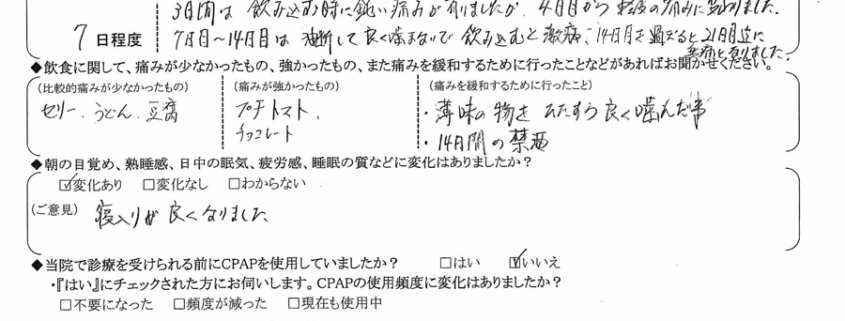 3日間は 飲み込む時に鈍い痛みが有りましたが、4日目から 軽度の痛みに変わりました。
7日程度
7日目〜14日目は 油断して良く噛まないで 飲み込むと激痛、14日目を過ぎると21日目迄に
無痛と有りました。
◆飲食に関して、痛みが少なかったもの、強かったもの、また痛みを緩和するために行ったことなどがあればお聞かせください。
(比較的痛みが少なかったもの) (痛みが強かったもの) (痛みを緩和するために行ったこと)
ゼリー、うどん、豆腐 プチトマト、 ・薄味の物を ひたすら良く噛んだ事
チョコレート ・14日間の禁酒
◆朝の目覚め、熟睡感、日中の眠気、疲労感、睡眠の質などに変化はありましたか?
☑変化あり □変化なし □わからない
(ご意見) 寝入りが 良くなりました
◆当院で診療を受けられる前にCPAPを使用していましたか? □はい ☑いいえ
・『はい』にチェックされた方にお伺いします。CPAPの使用頻度に変化はありましたか?
□不要になった □頻度が減った □現在も使用中